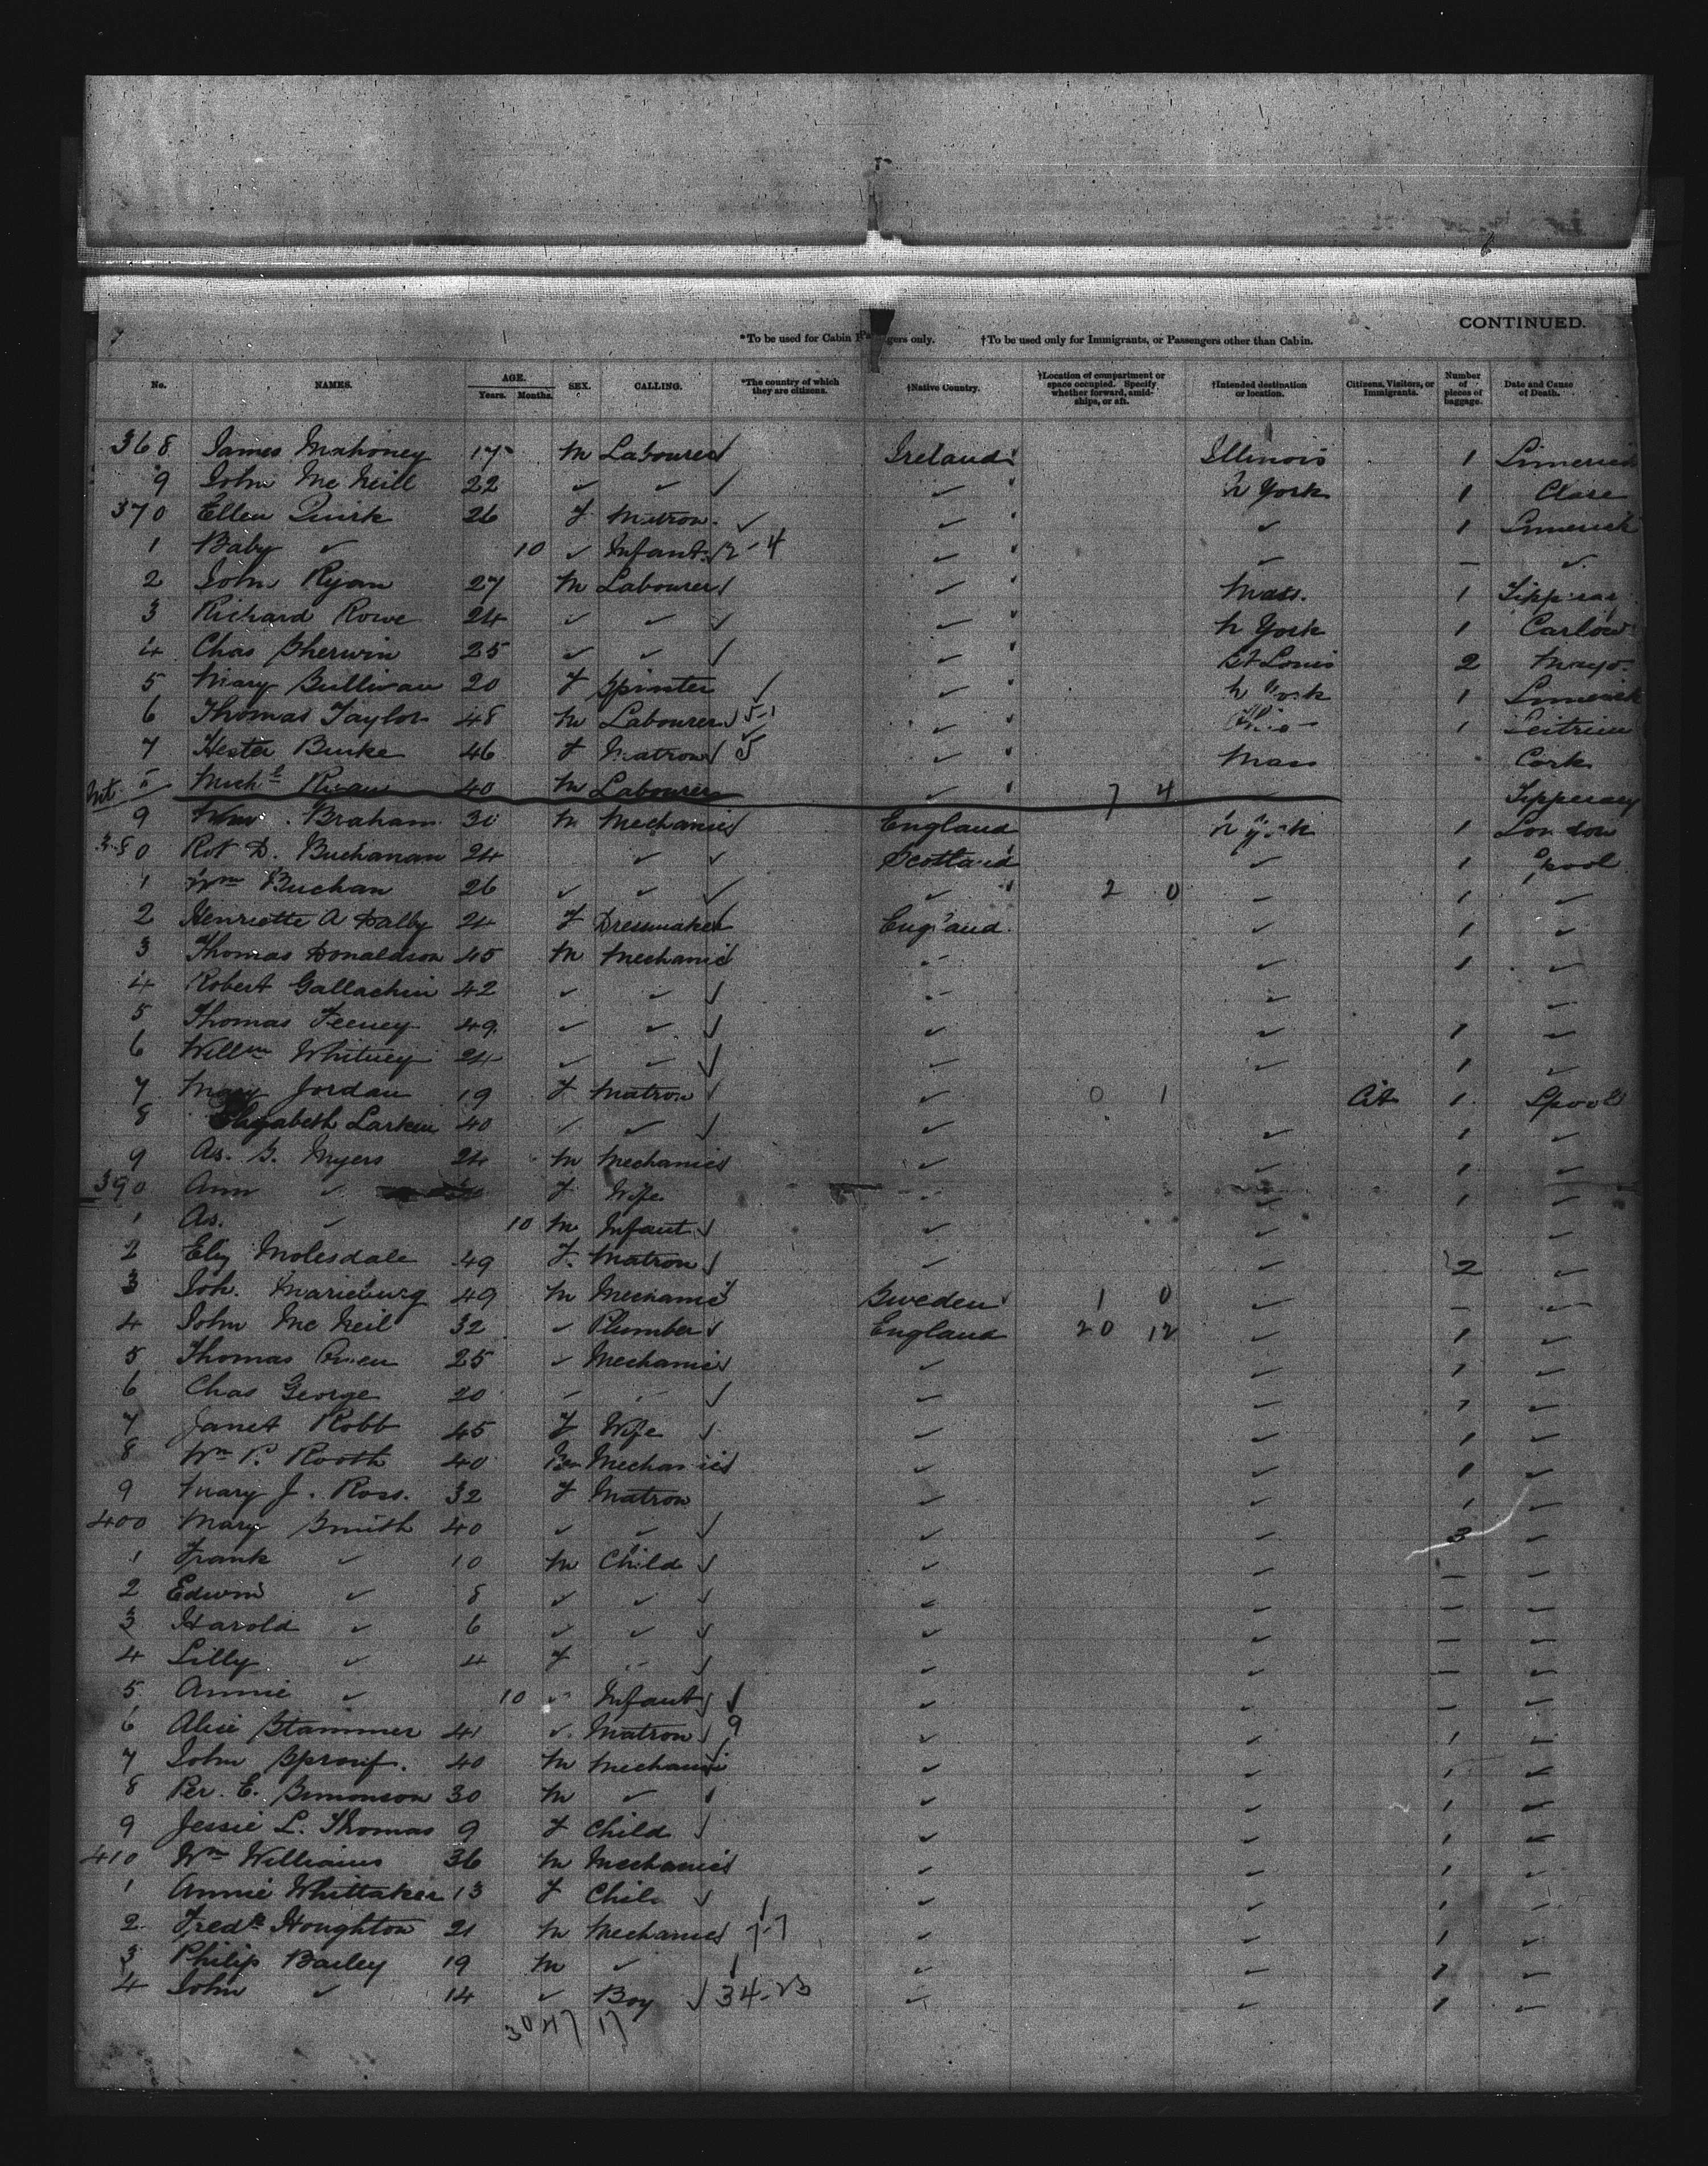 CONTINUED.
*To be used for Cabin Passengers only. †To be used only for Immigrants, or Passengers other than Cabin.
No. NAMES. AGE. Years. Months. SEX. CALLING. *The country of which they are citizens. †Native Country. †Location of compartment or space occupied. Specify whether forward, amidships, or aft. †Intended destination or location. Citizens, Visitors, or Immigrants. Number of pieces of baggage. Date and Cause of Death.
368 James Mahoney 17 M Labourer ✓ Ireland Illinois 1 Limerick
9 John Mc Neill 22 ✓ ✓ ✓ ✓ N York 1 Clare
370 Ellen Quirk 26 F Matron ✓ ✓ ✓ 1 Limerick
1 Baby ✓ 10 ✓ Infant 12-4 ✓ ✓ — ✓
2 John Ryan 27 M Labourer ✓ ✓ Mass. 1 Tipperary
3 Richard Rowe 24 ✓ ✓ ✓ ✓ N York 1 Carlow
4 Chas Sherwin 25 ✓ ✓ ✓ ✓ St Louis 2 Mayo
5 Mary Sullivan 20 F Spinster ✓ ✓ N York 1 Limerick
6 Thomas Taylor 48 M Labourer ✓ 5-1 ✓ Ohio 1 Leitrim
7 Hester Burke 46 F Matron ✓ 5 ✓ Mass Cork
8 Michl Ryan 40 M Labourer ✓ 7 4 Tipperary
9 Wm. Braham 30 M Mechanic ✓ England N York 1 London
380 Rot D. Buchanan 24 ✓ ✓ Scotland ✓ 1 Lpool
1 Wm Buchan 26 ✓ ✓ ✓ ✓ 2 0 ✓ 1 ✓
2 Henriette A Dalby 24 F Dressmaker ✓ England ✓ 1 ✓
3 Thomas Donaldson 45 M Mechanic ✓ ✓ ✓ 1 ✓
4 Robert Gallachin 42 ✓ ✓ ✓ ✓ ✓ ✓
5 Thomas Feeney 49 ✓ ✓ ✓ ✓ ✓ 1 ✓
6 Willm Whitney 24 ✓ ✓ ✓ ✓ ✓ 1 ✓
7 Mary Jordan 19 F Matron ✓ ✓ 0 1 Cit 1 Lpool
8 Elizabeth Larkin 40 ✓ ✓ ✓ ✓ ✓ 1 ✓
9 As. G. Myers 24 M Mechanic ✓ ✓ ✓ 1 ✓
390 Ann ✓ F Wife ✓ ✓ 1 ✓
1 As. ✓ 10 M Infant ✓ ✓ ✓ ✓
2 Eliz Molesdale 49 F Matron ✓ ✓ ✓ 2 ✓
3 Joh. Marieburg 49 M Mechanic ✓ Sweden 1 0 ✓ — ✓
4 John Mc Neil 32 ✓ Plumber ✓ England 20 12 ✓ 1 ✓
5 Thomas 25 ✓ Mechanic ✓ ✓ ✓ 1 ✓
6 Chas George 20 ✓ ✓ ✓ ✓ ✓ 1 ✓
7 Janet Robb 45 F Wife ✓ ✓ ✓ 1 ✓
8 Wm P. Rooth 40 M Mechanic ✓ ✓ ✓ 1 ✓
9 Mary J. Ross. 32 F Matron ✓ ✓ 1 ✓
400 Mary Smith 40 ✓ ✓ ✓ ✓ ✓ 3 ✓
1 Frank ✓ 10 M Child ✓ ✓ ✓ — ✓
2 Edwin ✓ 8 ✓ ✓ ✓ ✓ ✓ — ✓
3 Harold ✓ 6 ✓ ✓ ✓ ✓ ✓ — ✓
4 Lilly ✓ 4 F ✓ ✓ ✓ ✓ — ✓
5 Annie ✓ 10 ✓ Infant ✓ ✓ ✓ ✓ — ✓
6 Alice Stammer 41 ✓ Matron ✓ 9 ✓ ✓ 1 ✓
7 John Sprouf. 40 M Mechanic ✓ ✓ 1 ✓
8 Per. E. Simonson 30 M ✓ ✓ ✓ ✓ 1 ✓
9 Jessie L. Thomas 9 F Child ✓ ✓ ✓ 1 ✓
410 Wm Williams 36 M Mechanic ✓ ✓ ✓ 1 ✓
1 Annie Whittaker 13 F Child ✓ ✓ ✓ 1 ✓
2 Fredk Houghton 21 M Mechanic ✓ 7-7 ✓ ✓ 1 ✓
3 Philip Bailey 19 M ✓ ✓ ✓ ✓ 1 ✓
4 John ✓ 14 ✓ Boy ✓ 34-23 ✓ ✓ 1 ✓
30 47 17